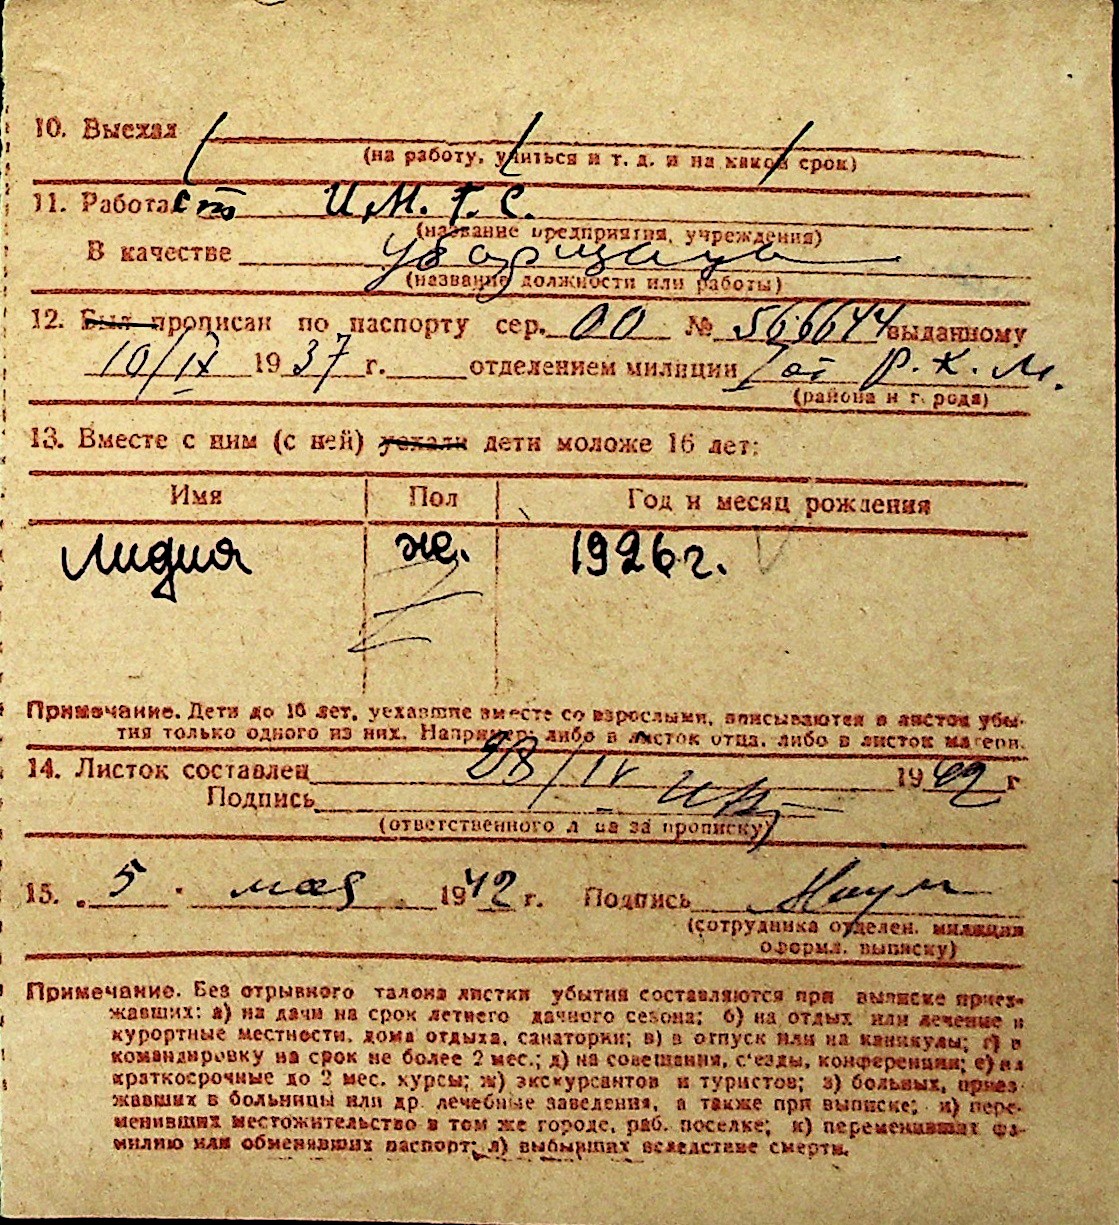 10. Выехал
(на работу, учиться и т. д. и на какой срок)
11. Работает И.М.Т.С.
(название предприятия, учреждения)
В качестве уборщица
(название должности или работы)
12. Был прописан по паспорту сер. 00 № 566644 выданному
10/IX 1937 г. отделением милиции 1 от Р.К.М.
(района и города)
13. Вместе с ним (с ней) уехали дети моложе 16 лет:
Имя Пол Год и месяц рождения
Лидия же. 1926 г.
Примечание. Дети до 16 лет, уехавшие вместе со взрослыми, вписываются в листок убы-
тия только одного из них. Например: либо в листок отца, либо в листок матери.
14. Листок составлен 28/IV 1942 г
Подпись
(ответственного лица за прописку)
15. 5 мая 1942 г. Подпись
(сотрудника отделен. милиции
оформл. выписку)
Примечание. Без отрывного талона листки убытия составляются при выписке приез-
жавших: а) на дачи на срок летнего дачного сезона; б) на отдых или лечение в
курортные местности, дома отдыха, санатории; в) в отпуск или на каникулы; г) в
командировку на срок не более 2 мес.; д) на совещания, с'езды, конференции; е) на
краткосрочные до 2 мес. курсы; ж) экскурсантов и туристов; з) больных, приез-
жавших в больницы или др. лечебные заведения, а также при выписке; и) пере-
менивших местожительство в том же городе, раб. поселке; к) переменивших фа-
милию или обменявших паспорт; л) выбывших вследствие смерти.